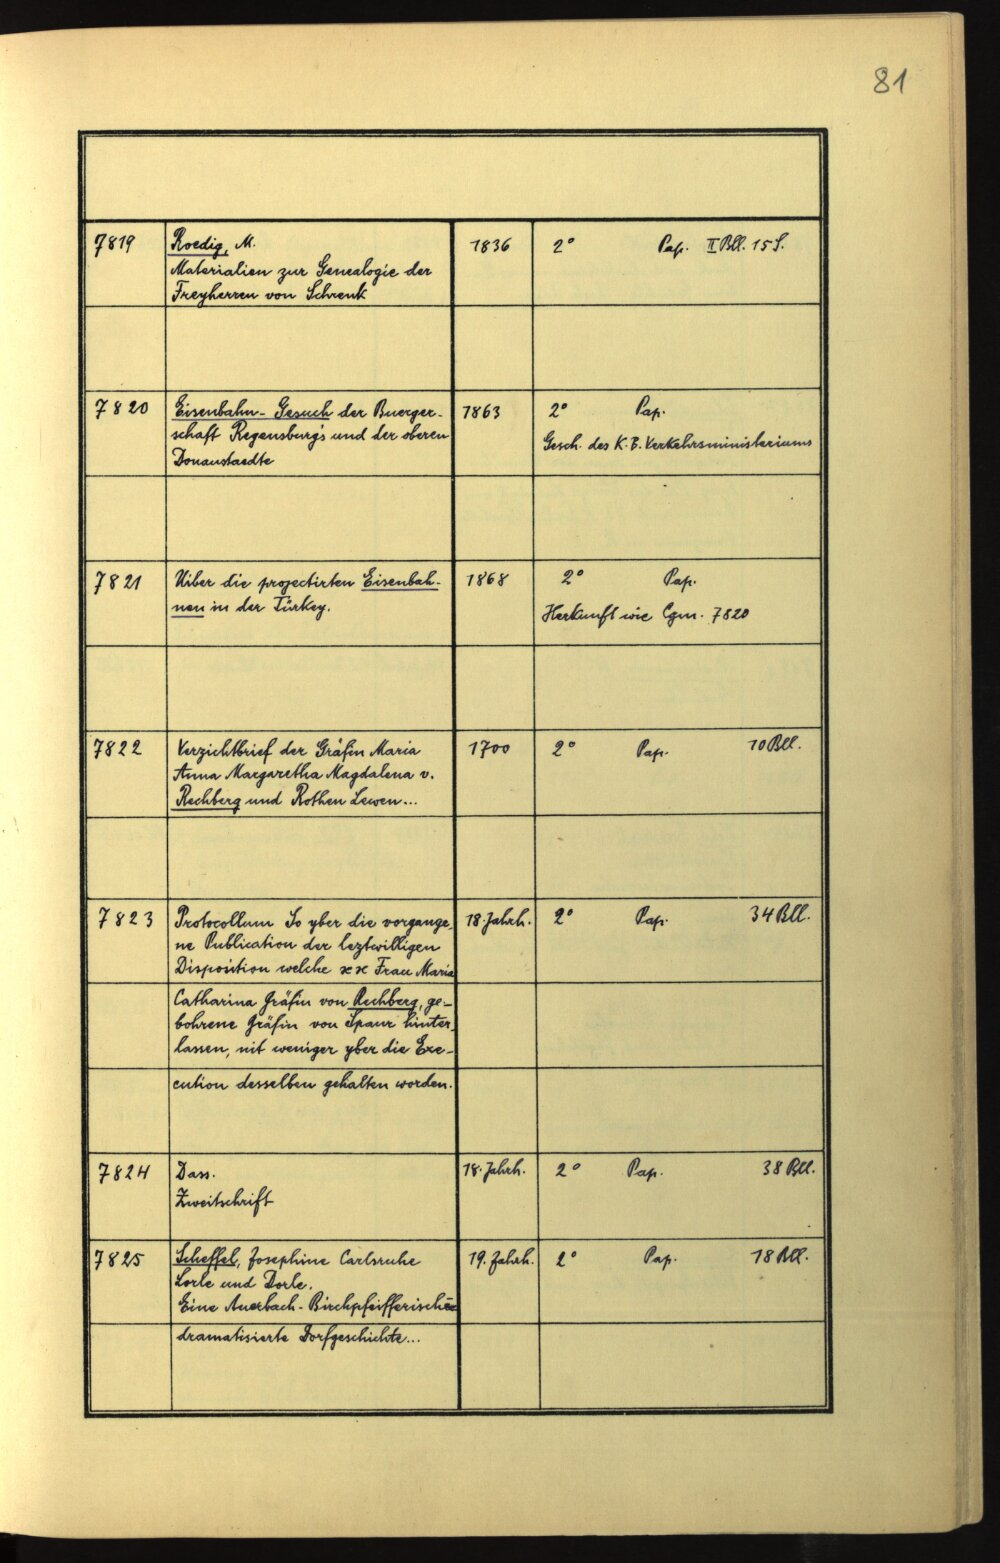 81
7819 Roedig, M. 1836 2° Pap. II Bll. 15 S.
Materialien zur Genealogie der
Freyherren von Schrenk
7820 Eisenbahn-Gesuch der Buerger- 1863 2° Pap.
schaft Regensburg's und der oberen Gesch. des K. B. Verkehrsministeriums
Donaustaedte
7821 Uiber die projectirten Eisenbah- 1868 2° Pap.
nen in der Türkey. Herkunft wie Cgm. 7820
7822 Verzichtbrief der Gräfin Maria 1700 2° Pap. 10 Bll.
Anna Margaretha Magdalena v.
Rechberg und Rothen Lewen...
7823 Protocollum So yber die vorgange- 18. Jahrh. 2° Pap. 34 Bll.
ne Publication der leztwilligen
Disposition welche xx Frau Maria
Catharina Gräfin von Rechberg, ge-
bohrene Gräfin von Spaur hinter-
lassen, nit weniger yber die Exe-
cution desselben gehalten worden.
7824 Dass. 18. Jahrh. 2° Pap. 38 Bll.
Zweitschrift
7825 Scheffel, Josephine Carlsruhe 19. Jahrh. 2° Pap. 18 Bll.
Lorle und Dorle.
Eine Auerbach-Birchpfeifferische
dramatisierte Dorfgeschichte...